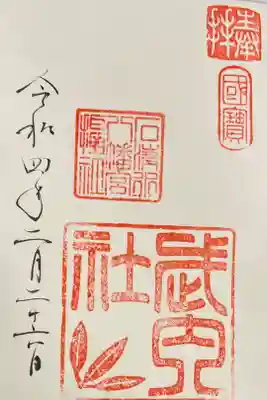 奉拝
國寶
石清水
八幡宮
攝社
武内
社
令和四年二月二十六日